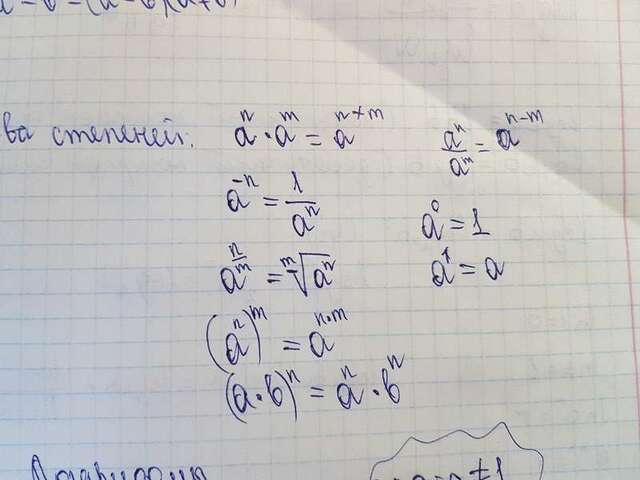 ва степеней: aⁿ · aᵐ = aⁿ⁺ᵐ aⁿ/aᵐ = aⁿ⁻ᵐ
a⁻ⁿ = 1/aⁿ a⁰ = 1
a^(n/m) = ᵐ√aⁿ a¹ = a
(aⁿ)ᵐ = aⁿ·ᵐ
(a·b)ⁿ = aⁿ · bⁿ
≠ 1